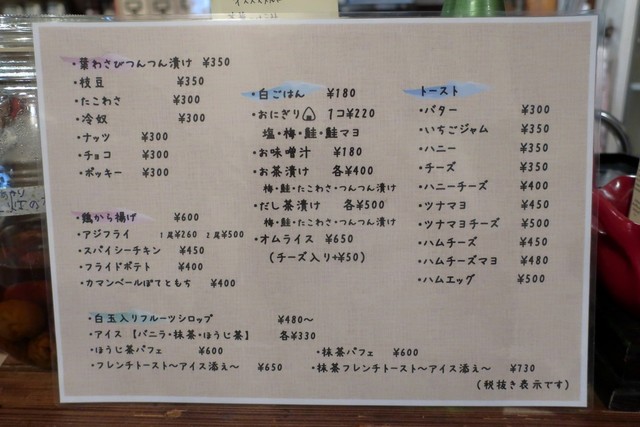 ・葉わさびつんつん漬け ¥350
・枝豆 ¥350
・たこわさ ¥300
・冷奴 ¥300
・ナッツ ¥300
・チョコ ¥300
・ポッキー ¥300
・鶏から揚げ ¥600
・アジフライ 1尾¥260 2尾¥500
・スパイシーチキン ¥450
・フライドポテト ¥400
・カマンベールぽてともち ¥400
・白ごはん ¥180
・おにぎり 1コ¥220
塩・梅・鮭・鮭マヨ
・お味噌汁 ¥180
・お茶漬け 各¥400
梅・鮭・たこわさ・つんつん漬け
・だし茶漬け 各¥500
梅・鮭・たこわさ・つんつん漬け
・オムライス ¥650
(チーズ入り+¥50)
トースト
・バター ¥300
・いちごジャム ¥350
・ハニー ¥350
・チーズ ¥350
・ハニーチーズ ¥400
・ツナマヨ ¥450
・ツナマヨチーズ ¥500
・ハムチーズ ¥450
・ハムチーズマヨ ¥480
・ハムエッグ ¥500
・白玉入りフルーツシロップ ¥480〜
・アイス【バニラ・抹茶・ほうじ茶】 各¥330
・ほうじ茶パフェ ¥600 ・抹茶パフェ ¥600
・フレンチトースト〜アイス添え〜 ¥650 ・抹茶フレンチトースト〜アイス添え〜 ¥730
(税抜き表示です)